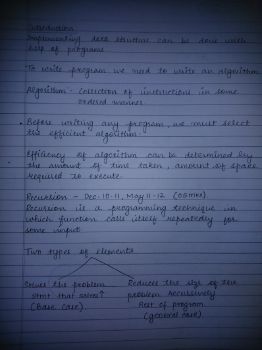 Introduction
Implementing data structure can be done with
help of programs
To write program we need to write an algorithm
Algorithm - Collection of instructions in some
ordered manner.
Before writing any program, we must select
the efficient algorithm.
Efficiency of algorithm can be determined by
the amount of time taken, amount of space
required to execute.
Recursion - Dec-10-11, May 11-12 (06mks)
Recursion is a programming technique in
which function calls itself repeatedly for
some input.
Two types of elements
Solves the problem
Stmt that solves↑
(Base case)
Reduces the size of the
problem recursively
Rest of program
(general case)